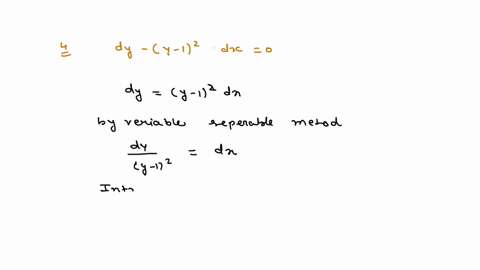 4 dy - (y-1)² · dx = 0
dy = (y-1)² dx
by veriable seperable metod
dy/(y-1)² = dx
Int